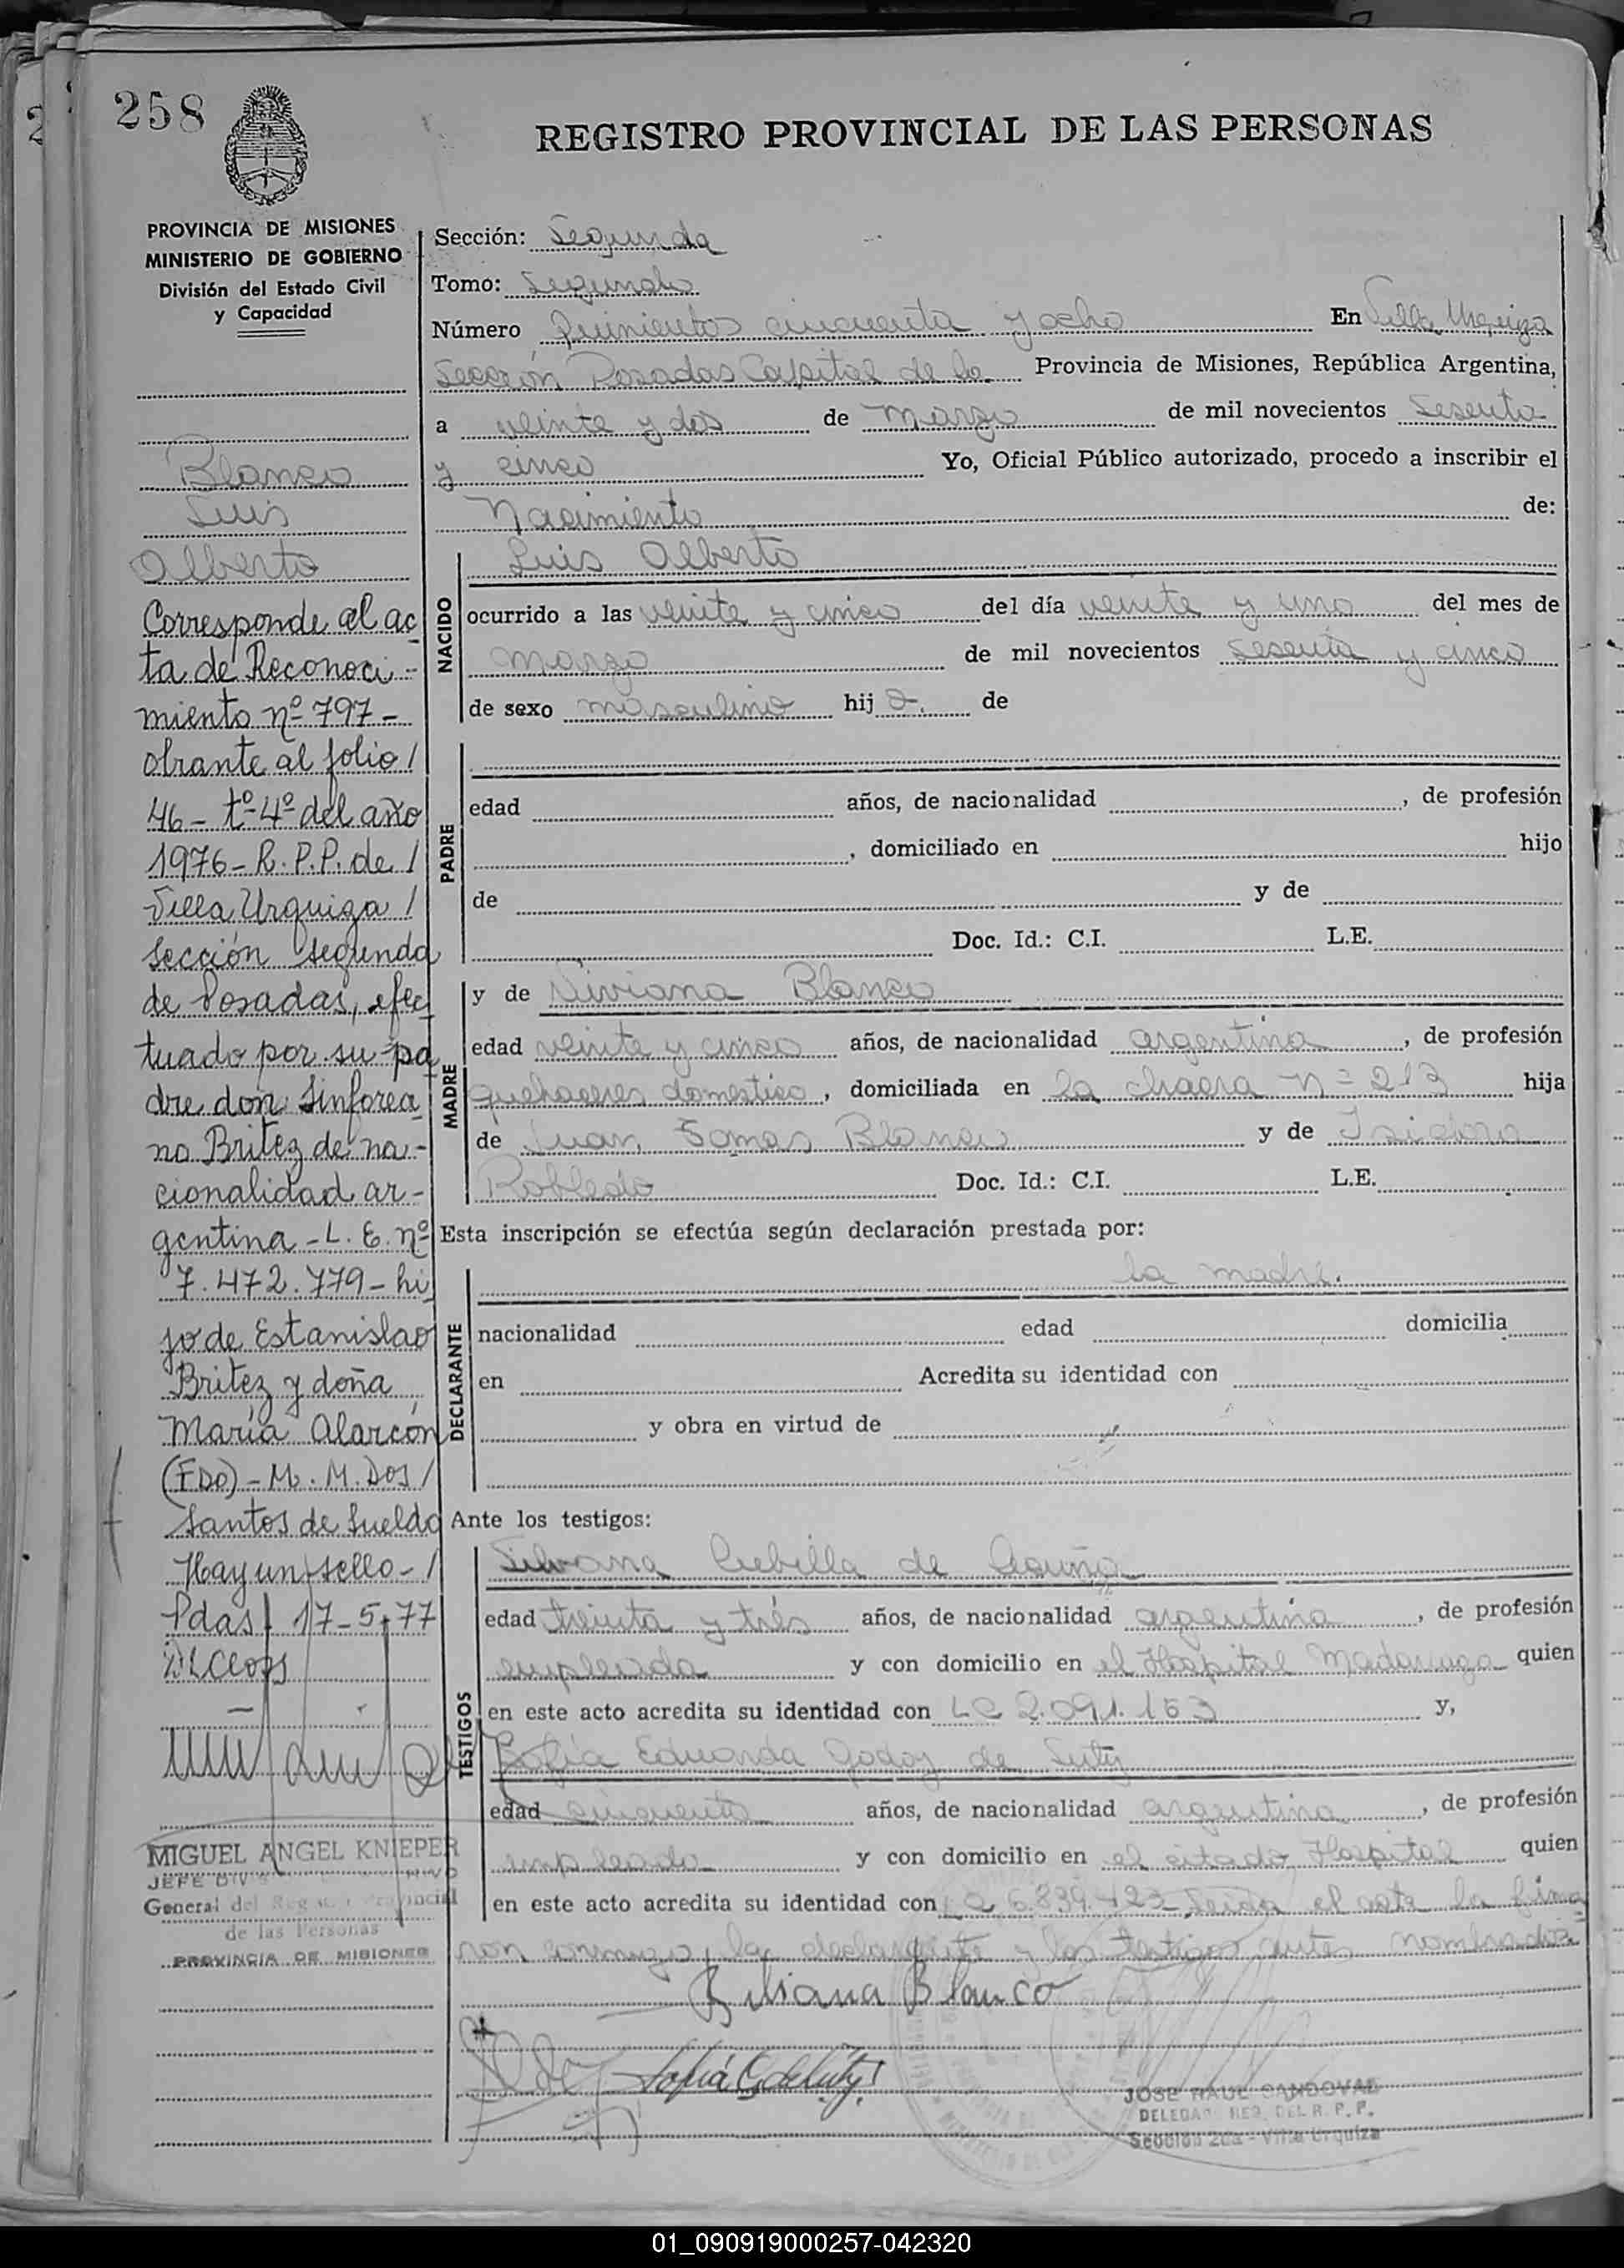 258
REGISTRO PROVINCIAL DE LAS PERSONAS
PROVINCIA DE MISIONES
MINISTERIO DE GOBIERNO
División del Estado Civil
y Capacidad
Blanco
Luis
Alberto
Corresponde al ac
ta de Reconoci-
miento nº 797-
obrante al folio/
46- tº 4º del año
1976- R.P.P. de/
Villa Urquiza/
sección segunda
de Posadas, efec
tuado por su pa
dre don: Sinforea
no Britez de na-
cionalidad ar-
gentina - L.E. nº
7.472.779- hi
jo de Estanislao
Britez y doña
María Alarcón
(FDO)- M.M. Dos/
Santos de Sueldo
Hay un sello-/
Pdas 17-5-77
MIGUEL ANGEL KNIEPER
JEFE DIV
General del Registro Provincial
de las Personas
PROVINCIA DE MISIONES
Sección: Segunda
Tomo: Segundo
Número Quinientos cincuenta y ocho En Villa Urquiza
Sección Posadas Capital de la Provincia de Misiones, República Argentina,
a veinte y dos de Marzo de mil novecientos Sesenta
y cinco Yo, Oficial Público autorizado, procedo a inscribir el
Nacimiento de:
NACIDO
Luis Alberto
ocurrido a las veinte y cinco del día veinte y uno del mes de
marzo de mil novecientos sesenta y cinco
de sexo masculino hijo. de
PADRE
edad años, de nacionalidad , de profesión
, domiciliado en hijo
de y de
Doc. Id.: C.I. L.E.
MADRE
y de Viviana Blanco
edad veinte y cinco años, de nacionalidad argentina, de profesión
quehaceres domestico, domiciliada en la chacra nº 213 hija
de Juan Tomas Blanco y de Isidora
Robledo Doc. Id.: C.I. L.E.
Esta inscripción se efectúa según declaración prestada por:
DECLARANTE
la madre.
nacionalidad edad domicilia
en Acredita su identidad con
y obra en virtud de
Ante los testigos:
TESTIGOS
Silvana Cubilla de Acuña
edad treinta y tres años, de nacionalidad argentina, de profesión
empleada y con domicilio en el Hospital Madariaga quien
en este acto acredita su identidad con LC 2.091.153 y,
Sofía Eduarda Godoy de Suty
edad cincuenta años, de nacionalidad argentina, de profesión
empleada y con domicilio en el citado Hospital quien
en este acto acredita su identidad con LC 6.839.423- Leida el acta la firma
ron conmigo, la declarante y los testigos antes nombrados.
Biliana Blanco
Sofia G de Suty
JOSE RAUL SANDOVAL
DELEGAD REG. DEL R. P. P.
Sección 2da - Villa Urquiza
01_090919000257-042320